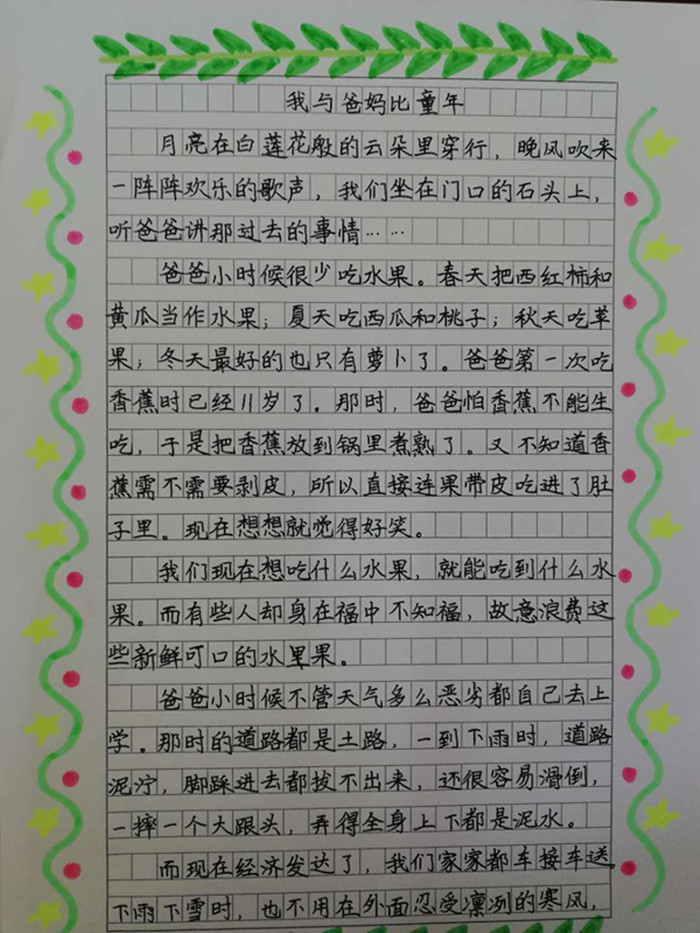 我与爸妈比童年
月亮在白莲花般的云朵里穿行，晚风吹来
一阵阵欢乐的歌声，我们坐在门口的石头上，
听爸爸讲那过去的事情……
爸爸小时候很少吃水果。春天把西红柿和
黄瓜当作水果；夏天吃西瓜和桃子；秋天吃苹
果；冬天最好的也只有萝卜了。爸爸第一次吃
香蕉时已经11岁了。那时，爸爸怕香蕉不能生
吃，于是把香蕉放到锅里煮熟了。又不知道香
蕉需不需要剥皮，所以直接连果带皮吃进了肚
子里。现在想想就觉得好笑。
我们现在想吃什么水果，就能吃到什么水
果。而有些人却身在福中不知福，故意浪费这
些新鲜可口的水果。
爸爸小时候不管天气多么恶劣都自己去上
学。那时的道路都是土路，一到下雨时，道路
泥泞，脚踩进去都拔不出来，还很容易滑倒，
一摔一个大跟头，弄得全身上下都是泥水。
而现在经济发达了，我们家家都车接车送，
下雨下雪时，也不用在外面忍受凛冽的寒风，